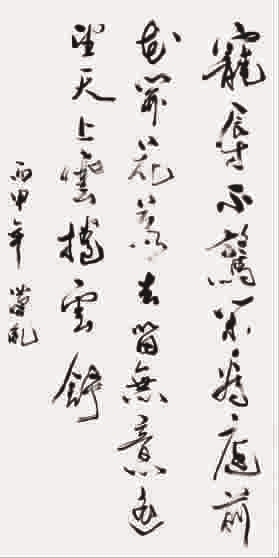 寵辱不驚看庭前
花開花落去留無意遙
望天上雲捲雲舒
丙申年